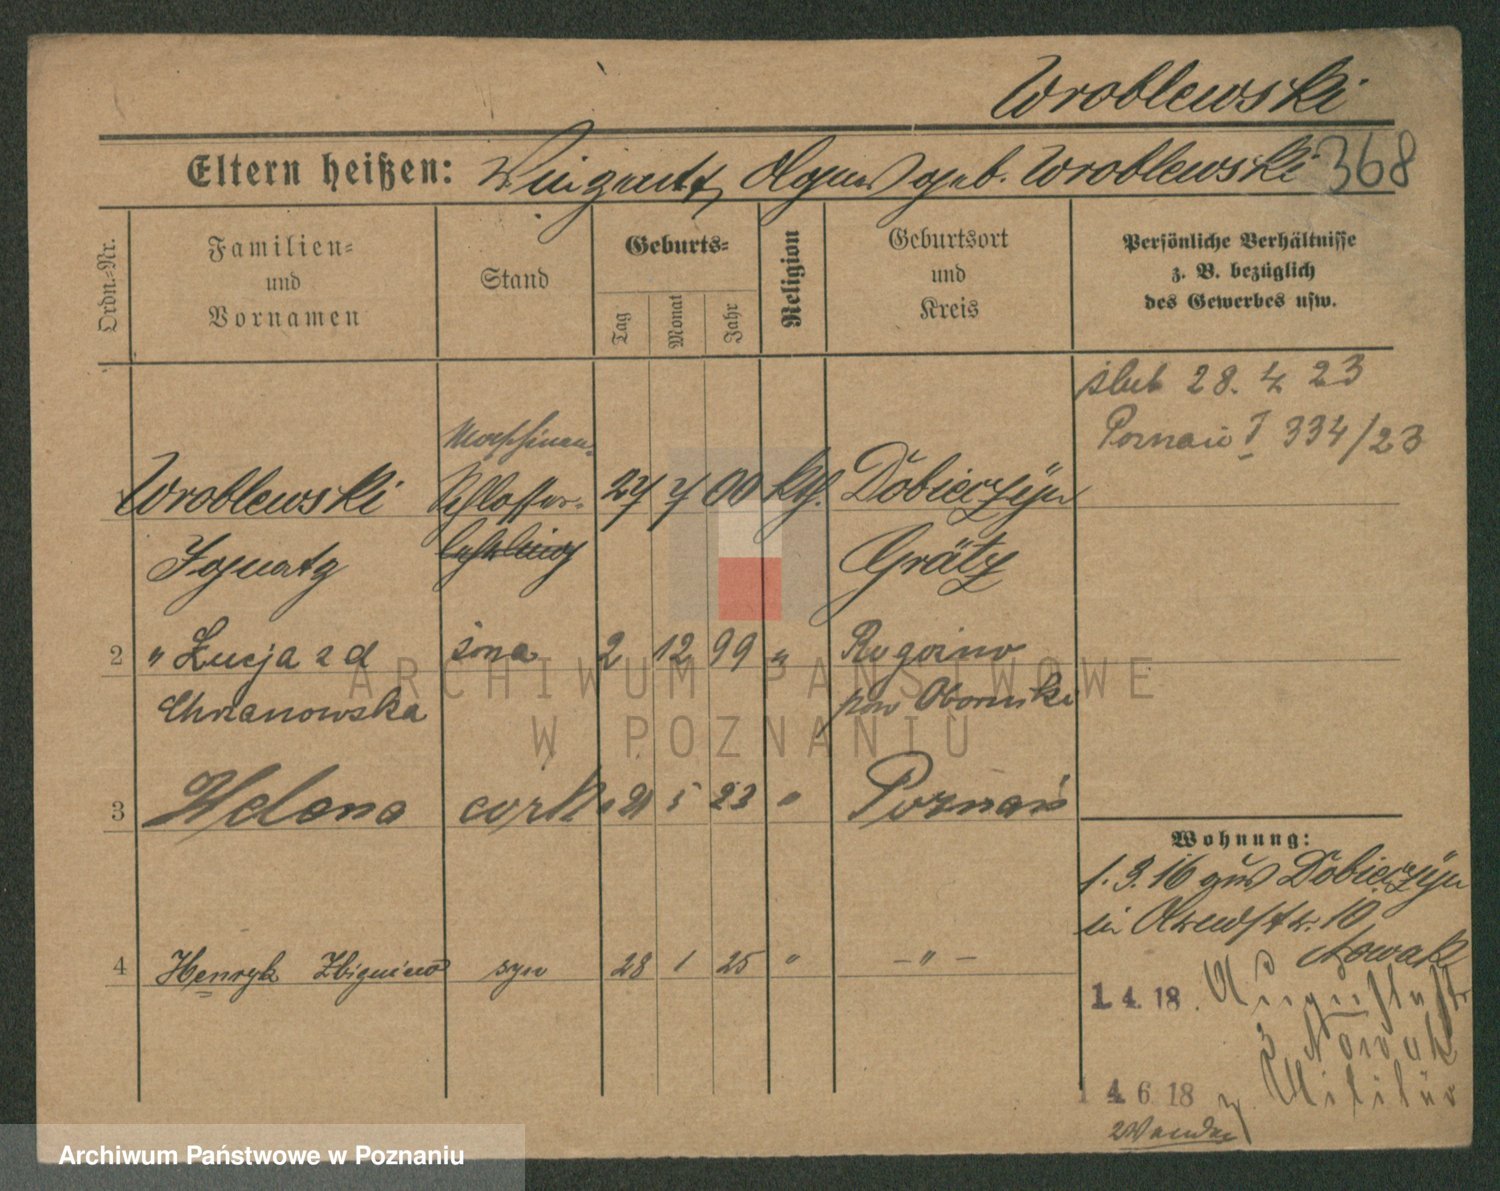 Wroblewski
Eltern heißen: Agnes geb. Wroblewski 368
Ordn.-Nr.
Familien-
und
Vornamen
Stand
Geburts-
Tag
Monat
Jahr
Religion
Geburtsort
und
Kreis
Persönliche Verhältnisse
z. B. bezüglich
des Gewerbes usw.
ślub 28. 4 23
Poznań I 334/23
Maschinen-
Wroblewski Schlosser- 27 7 00 kth. Dobieczyn
Ignatz lehrling Grätz
2 " Łucja z d żona 2 12 99 " Rogoźno
Chrzanowska pow Oborniki
3 Helena córka 21 5 23 " Poznań
4 Henryk Zbigniew syn 28 1 25 " – " –
Wohnung:
1. 3. 16 aus Dobieczyn
in 10
Nowak
1. 4. 18. Auguststr.
3 Nowak
1 4. 6 18 z. Militär
ARCHIWUM PAŃSTWOWE
W POZNANIU
Archiwum Państwowe w Poznaniu